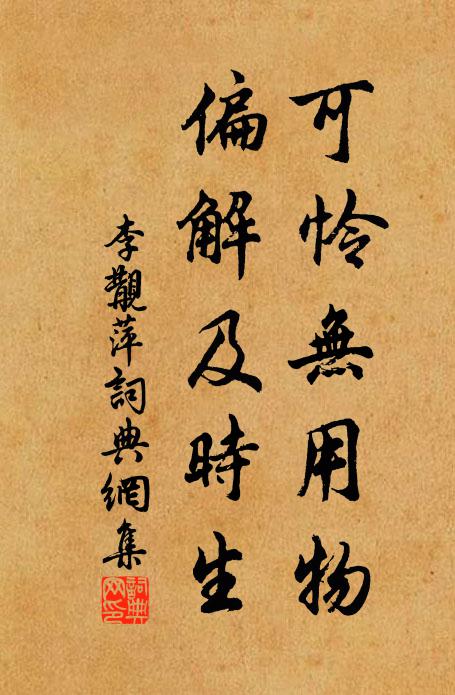 可怜無用物
偏解及時生
李觀萍詞典網集
詞典
网